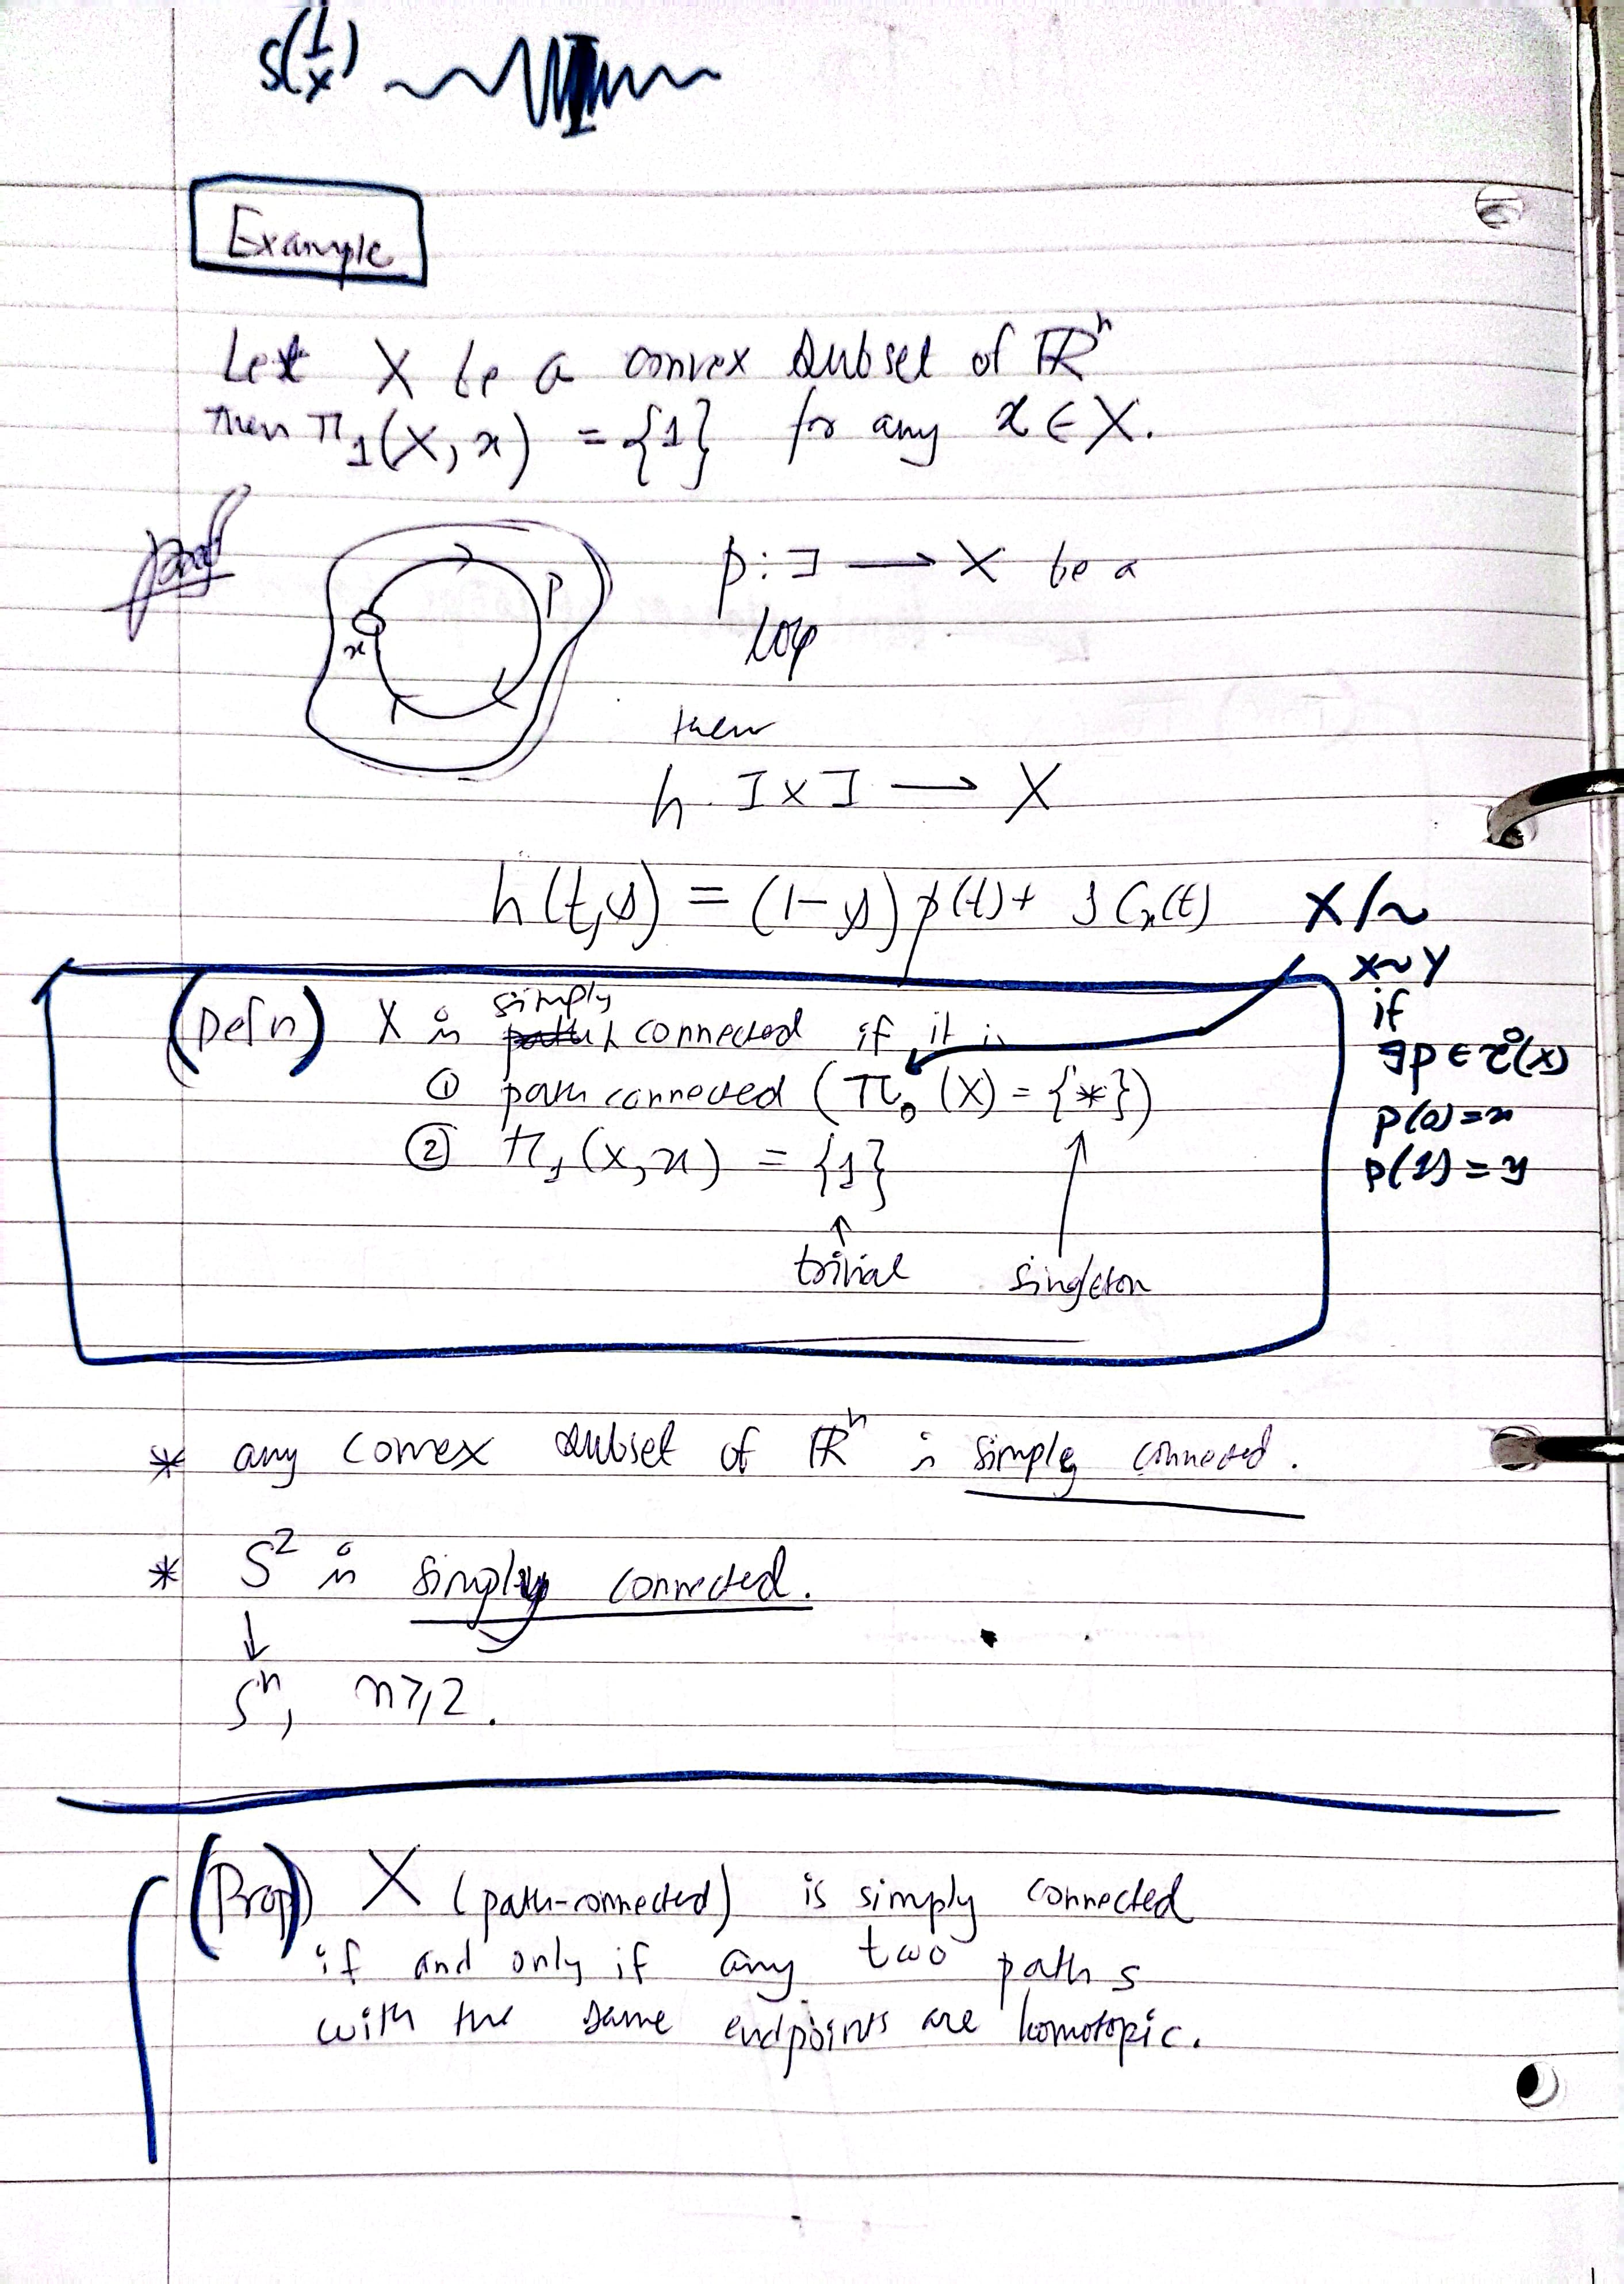 S(1/x)
Example
Let X be a convex subset of ℝⁿ
then π₁(X, x) = {1} for any x ∈ X.
proof
p
x
p : I → X be a
loop
then
h : I × I → X
h(t,s) = (1-s) p(t) + s Cₓ(t)
X/~
x~y
if
∃p ∈
p(0)=x
p(1)=y
(Defn) X is simply connected if it is
① path connected (π₀(X) = {*})
② π₁(X, x) = {1}
trivial singleton
* any convex subset of ℝⁿ is simply connected.
* S² is simply connected.
↓
Sⁿ, n ≥ 2.
(Prop) X (path-connected) is simply connected
if and only if any two paths
with the same endpoints are homotopic.